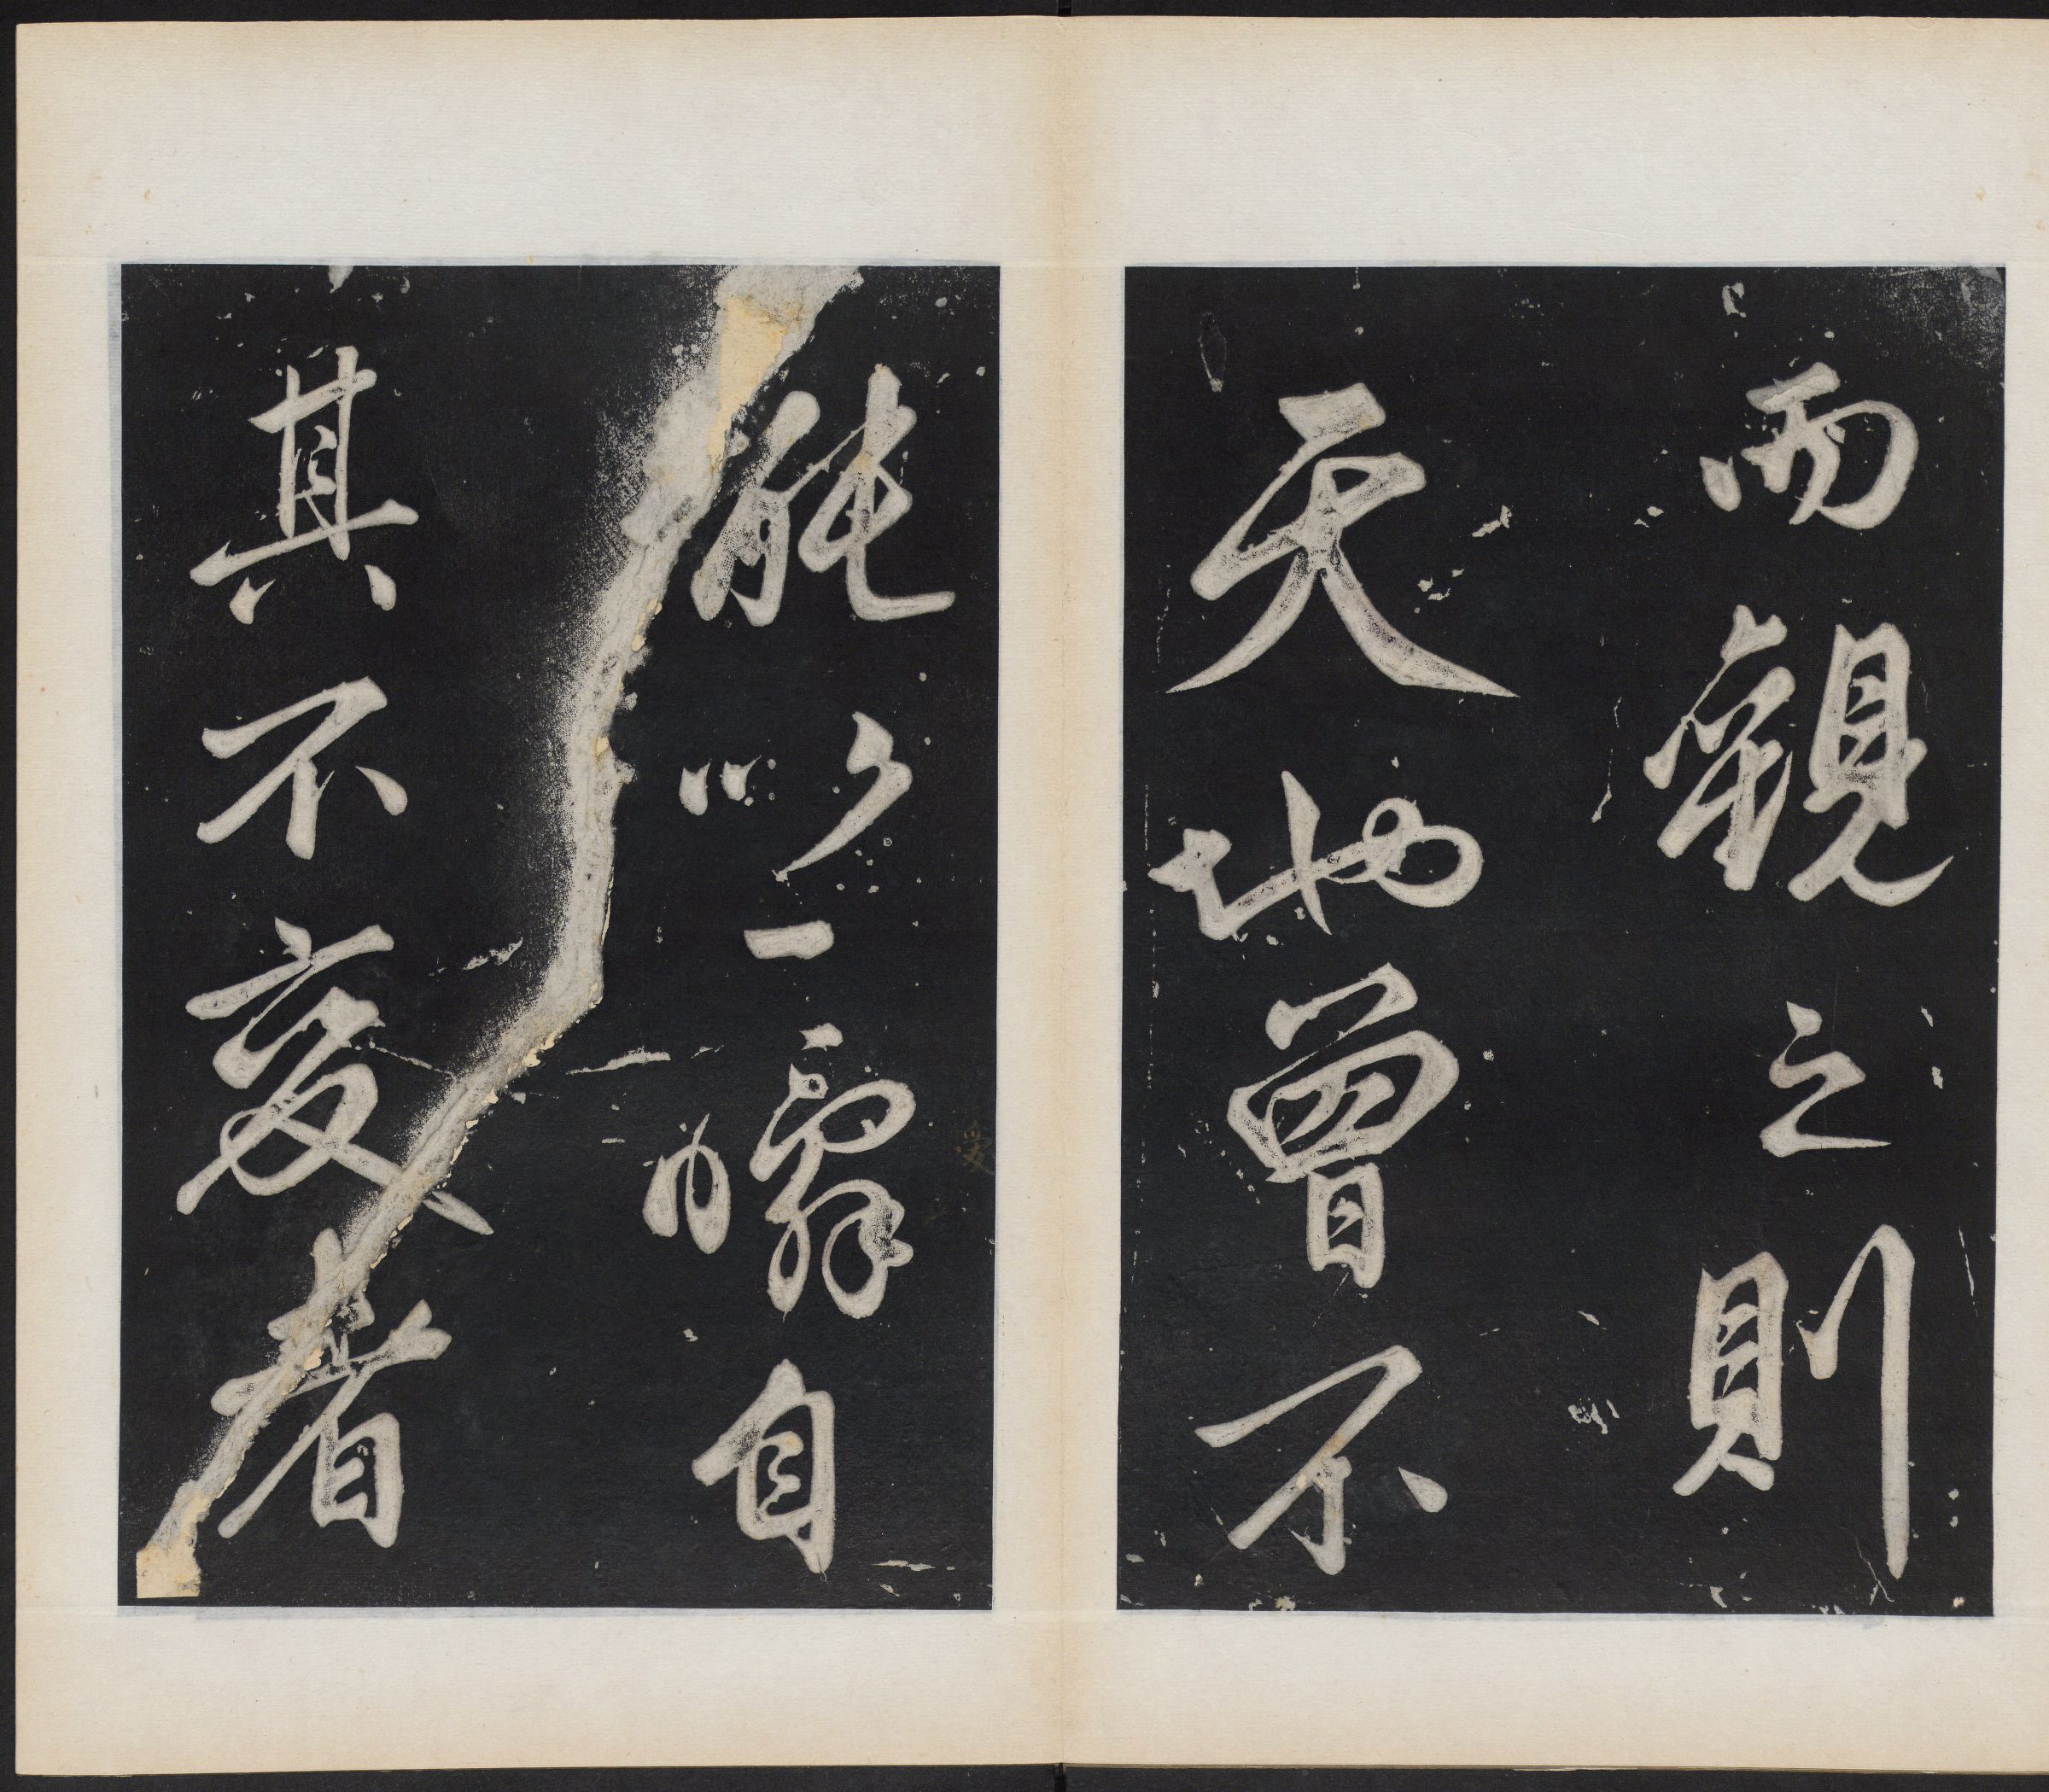 而觀之則
天地曾不
能以一瞬自
其不變者